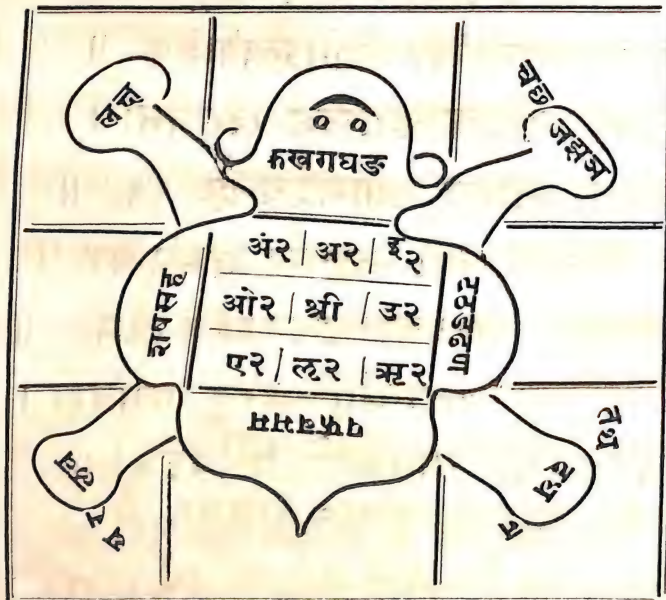 लक्ष
चछ
जझञ
कखगघङ
अं२ | अ२ | इ२
ओ२ | श्री | उ२
ए२ | लृ२ | ऋ२
शषसह
टठडढण
पफबभम
लव
यर
तथ
दध
न